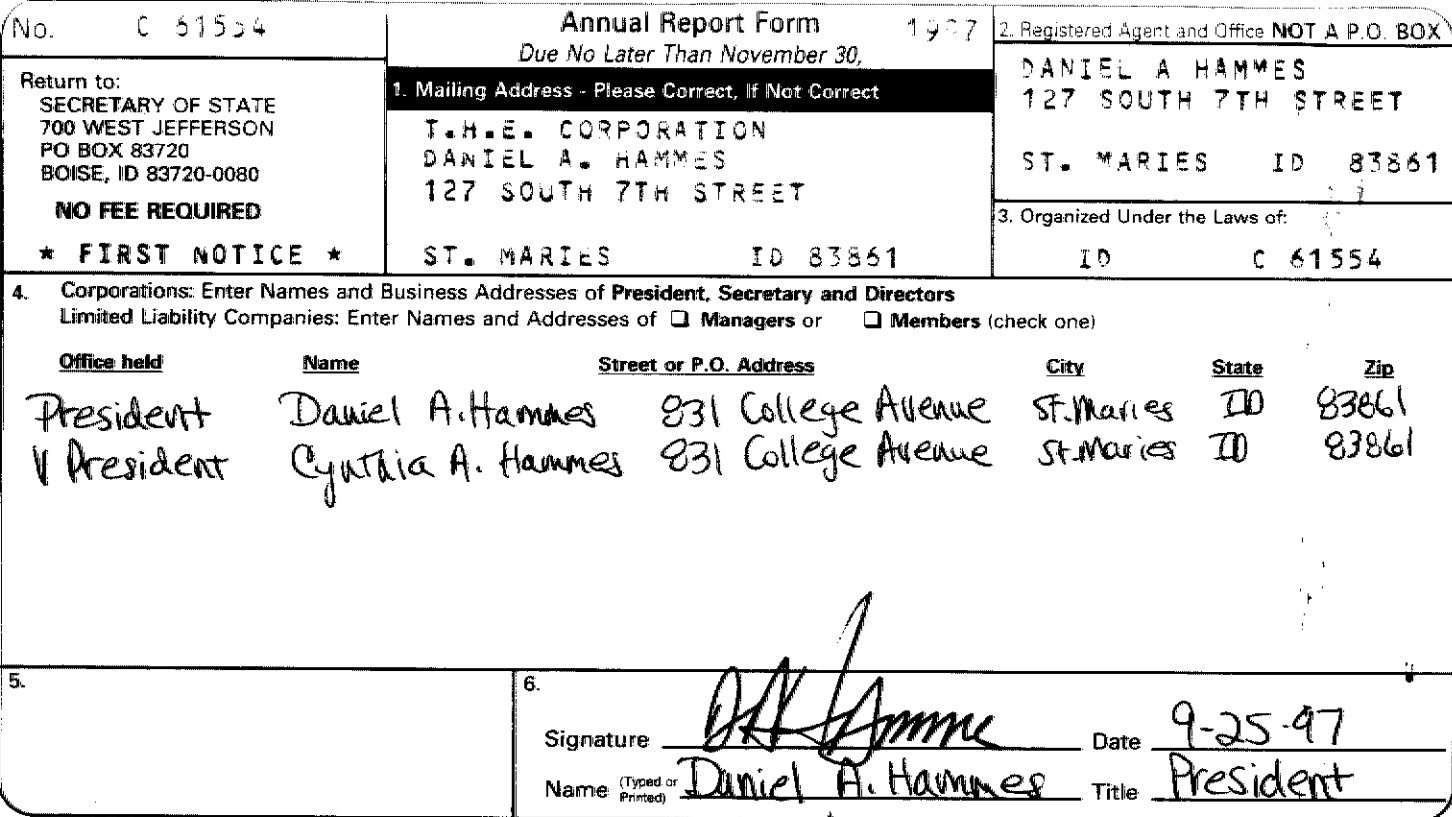 No. C 61554
Annual Report Form 1997
Due No Later Than November 30,
Return to:
SECRETARY OF STATE
700 WEST JEFFERSON
PO BOX 83720
BOISE, ID 83720-0080
NO FEE REQUIRED
* FIRST NOTICE *
1. Mailing Address - Please Correct, If Not Correct
T.H.E. CORPORATION
DANIEL A. HAMMES
127 SOUTH 7TH STREET
ST. MARIES ID 83861
2. Registered Agent and Office NOT A P.O. BOX
DANIEL A HAMMES
127 SOUTH 7TH STREET
ST. MARIES ID 83861
3. Organized Under the Laws of:
ID C 61554
4. Corporations: Enter Names and Business Addresses of President, Secretary and Directors
Limited Liability Companies: Enter Names and Addresses of ❑ Managers or ❑ Members (check one)
Office held Name Street or P.O. Address City State Zip
President Daniel A. Hammes 831 College Avenue St. Maries ID 83861
V President Cynthia A. Hammes 831 College Avenue St. Maries ID 83861
5.
6.
Signature Date 9-25-97
Name (Typed or Printed) Daniel A. Hammes Title President